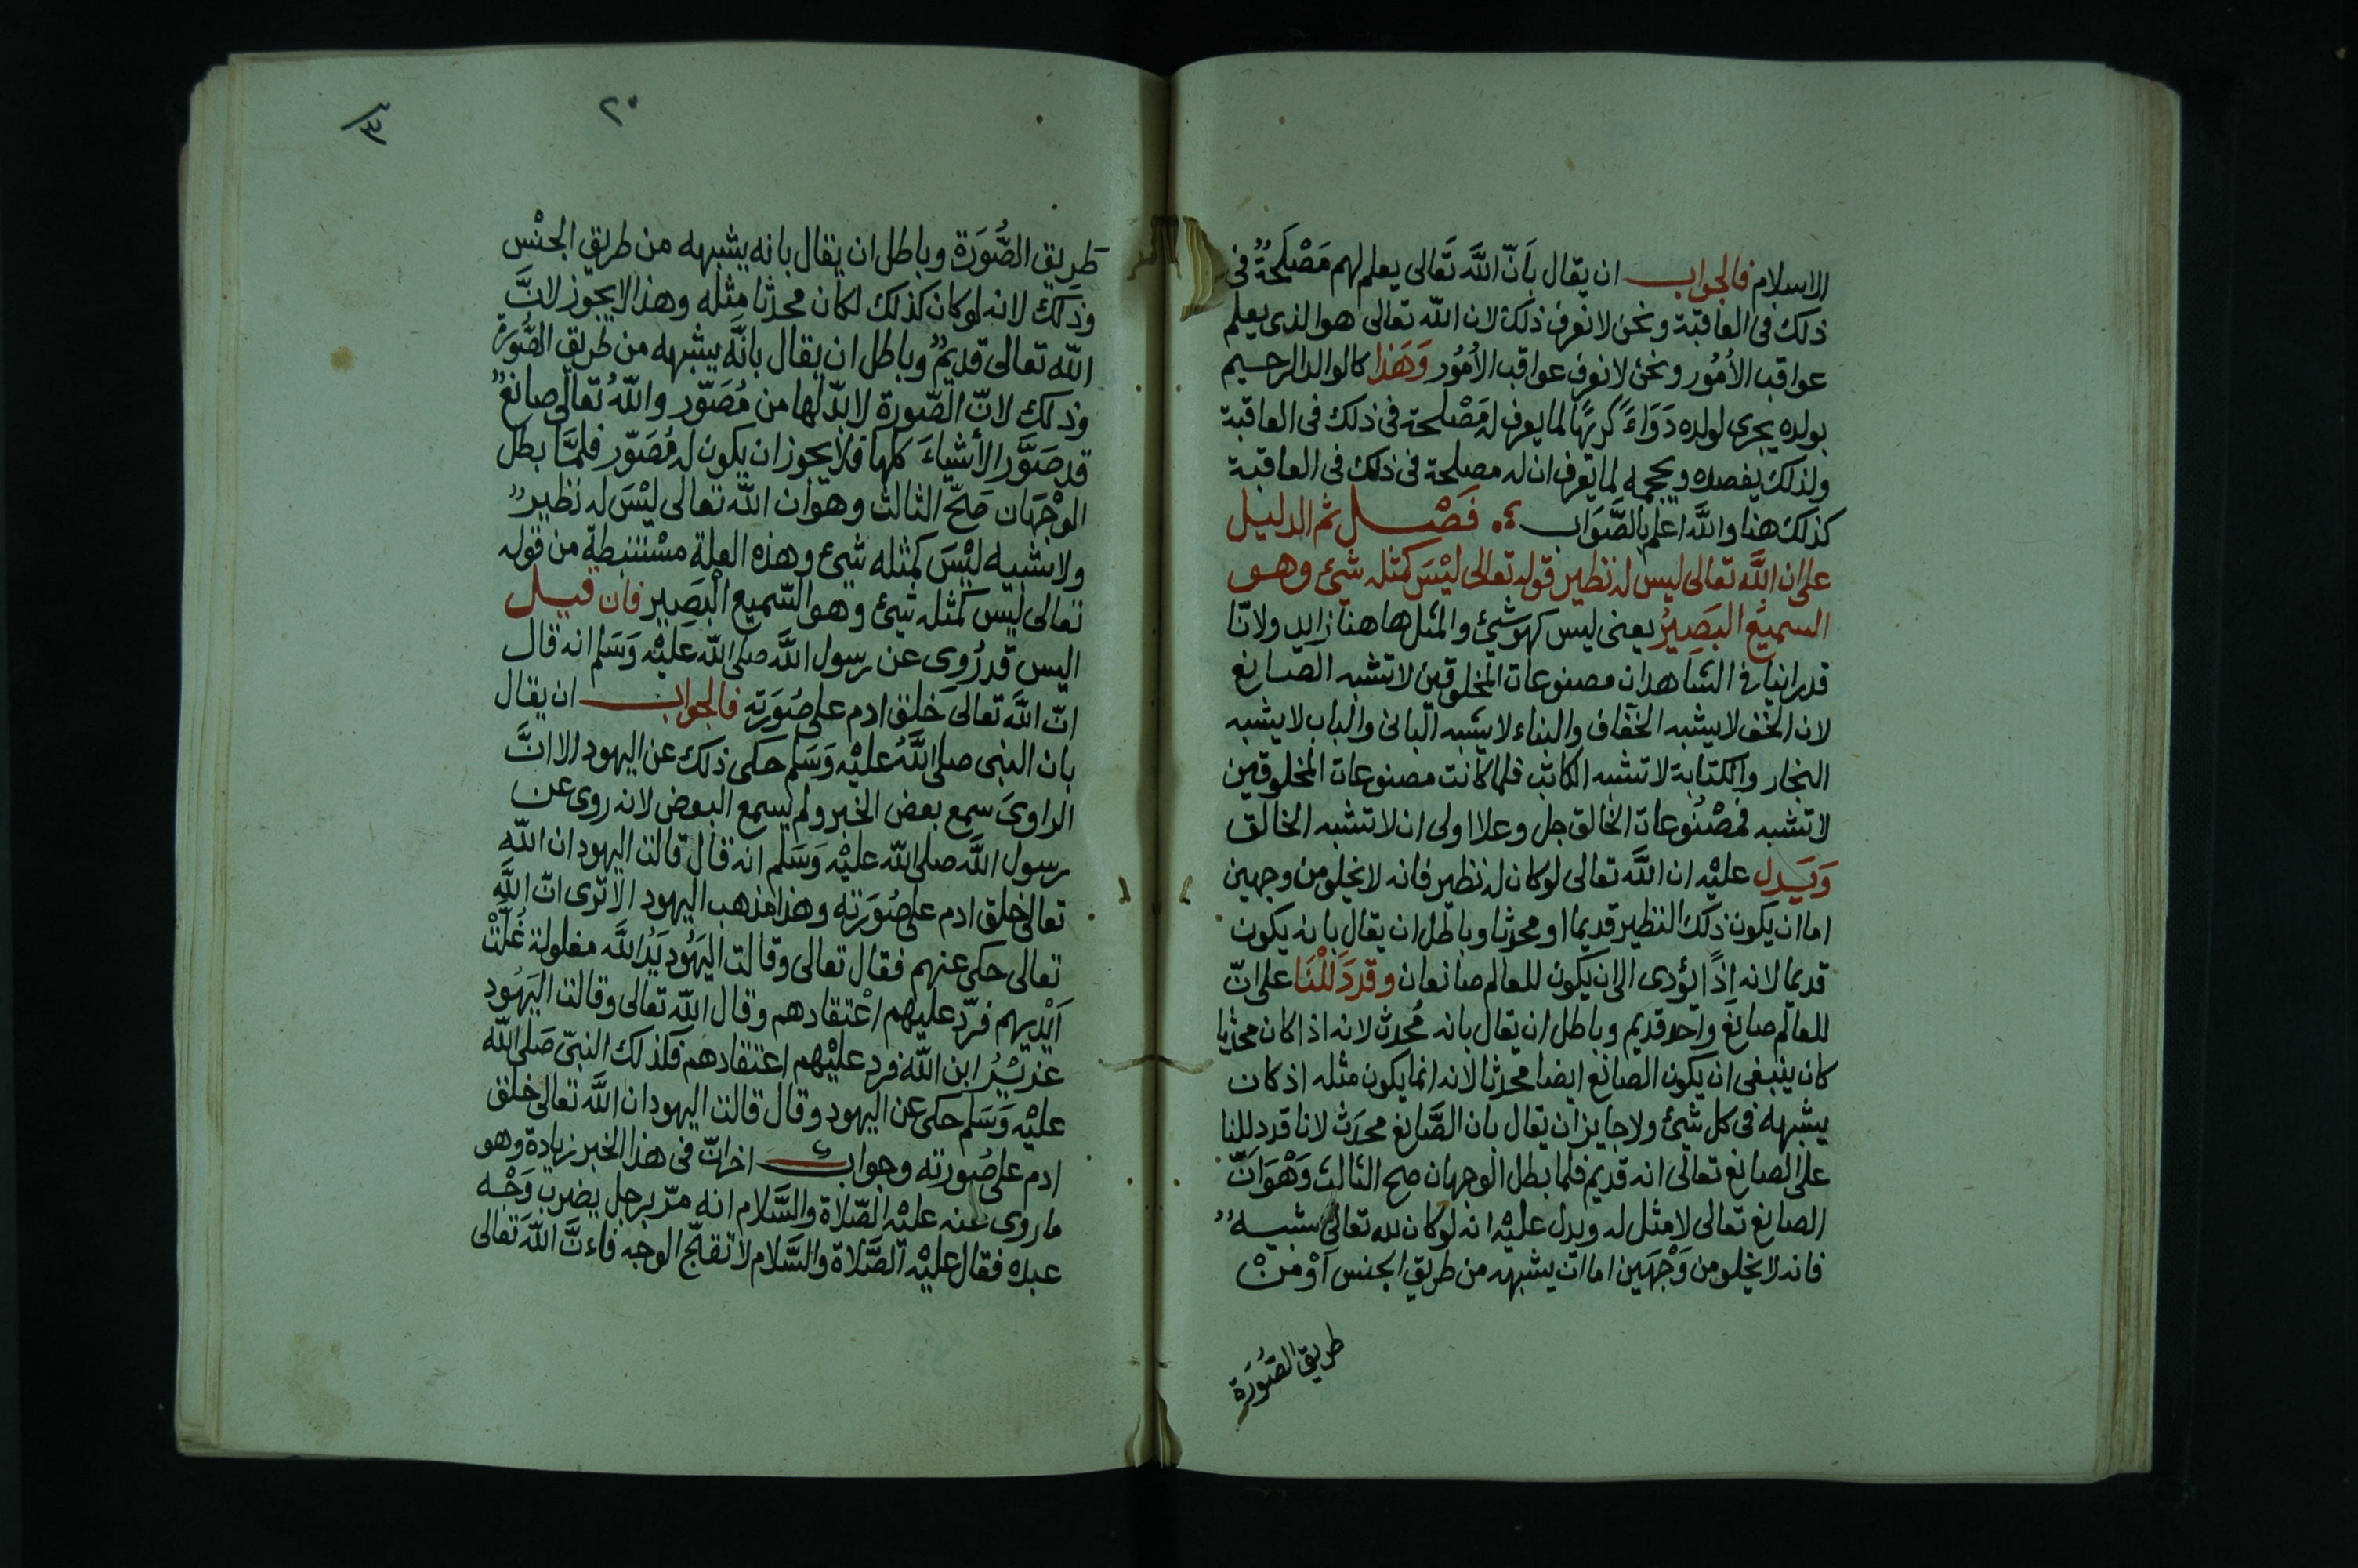 الاسلام فالجواب ان يقال بَاَنّ اللَّه تَعالى يعلم لهم مَصْلَحَةٌ فى
ذلك فى العاقبة ونحن لا نعرف ذلك لان اللّه تعالى هو الذى يعلم
عواقب الاُمُور ونحن لا نعرف عواقب الاُمُور وَهَذا كالوالد الرحيم
بولده يجرى لولده دَوَاءً كَرِيًها لما يعرف له مَصْلحة فى ذلك فى العاقبة
ولذلك يفصده ويحجمه لما يعرف ان له مصلحة فى ذلك فى العاقبة
كذلك هنا واللَّه اعلم بالصَّوَاب فَصْل ثم الدليل
على ان اللَّه تعالى ليس له نظير قوله تعالى ليْسَ كمثله شيئ وهو
السميع البَصِيرُ يعنى ليس كهو شيئ والمثل هاهنا زايد ولانّا
قد راينا فى الشاهد ان مصنوعات المخلوقين لا تشبه الصانع
لان الخف لا يشبه الخفاف والبناء لا يشبه البانى والباب لا يشبه
النجار والكتابة لا تشبه الكاتب فلما كانت مصنوعات المخلوقين
لا تشبه فمَصْنُوعات الخالق جل وعلا اولى ان لا تشبه الخالق
وَيَدل عليْه ان اللَّه تعالى لو كان له نظير فانه لا يخلو من وجهين
اما ان يكون ذلك النظير قديما او محدثا وباطل ان يقال بانه يكون
قديما لانه اذًا يؤدى الى ان يكون للعالم صانعان وقد دَلَلْنَا على انّ
للعالم صانع واحد قديم وباطل ان يقال بانه مُحدث لانه اذا كان محدثا
كان ينبغى ان يكون الصانع ايضا محدثا لانه انما يكون مثله اذ كان
يشبهه فى كل شيئ ولا جايز ان يقال بان الصَّانع محدَث لانا قد دللنا
على الصانع تعالى انه قديم فلما بطل الوجهان صح الثالث وَهْوَ اَنّ
الصانع تعالى لا مثل له ويدل عليْه انه لو كان لله تعالى شبيهٌ
فانه لا يخلو من وَجْهَين اما ان يشبهه من طريق الجنس اَوْ منْ
طريق الصُّورَة
٢٠
طَريق الصُّورَة وباطل ان يقال بانه يشبهه من طريق الجنْس
وذلك لانه لو كان كذلك لكان محدثا مثله وهذا لا يجوز لانَّ
اللّه تعالى قديمٌ وباطل ان يقال بانَّه يشبهه من طريق الصُّورَة
وذلك لانّ الصّورة لا بدّ لها من مُصَوّر واللّهُ تعالى صانعٌ
قد صَوَّر الأشياءَ كلها فلا يجوز ان يكون له مُصَوّر فلمَّا بطل
الوجْهَان صَحّ الثالث وهو ان اللّه تعالى ليْسَ له نظيرٌ
ولا شبيه ليْسَ كمثله شيئ وهذه العلة مسْتنبطة من قوله
تعالى ليس كمثله شيئ وهو السّميع البَصِير فان قيل
اليس قد رُوى عن رسول اللَّه صلى اللّه عليْه وَسَلم انه قال
انّ اللَّه تعالى خلق ادم على صُوَرَته فالجواب ان يقال
بان النبى صلى اللَّهُ عليْه وَسَلم حكى ذلك عن اليهود الا انَّ
الراوىَ سمع بعض الخبر ولم يسمع البعض لانه روى عن
رسول اللَّه صلى اللّه عليْه وَسَلم انه قال قالت اليهود ان اللّه
تعالى خلق ادم على صُوَرَته وهذا مذهب اليهود الا ترى انّ اللَّه
تعالى حكى عنهم فقال تعالى وقالت اليَهُود يَدُ اللَّه مغلولة غُلّتْ
اَيْديهم فردّ عليهم اعْتقادهم وقال اللّه تعالى وقالت اليَهُود
عزيْرُ ابن اللّه فرد عليْهم اعتقادهم فكذلك النبىّ صَلى اللّه
عليْه وَسَلم حكى عن اليهود وقال قالت اليهود ان اللَّه تعالى خلق
ادم على صُورته وجواب اخر انّ فى هذا الخبر زيادة وهو
ما روى عنه عليْه الصّلاة والسَّلام انه مرّ برجل يضرب وَجْه
عبده فقال عليْه الصَّلاة والسَّلام لا تقبّح الوجه فاءنَّ اللّهَ تَعالى